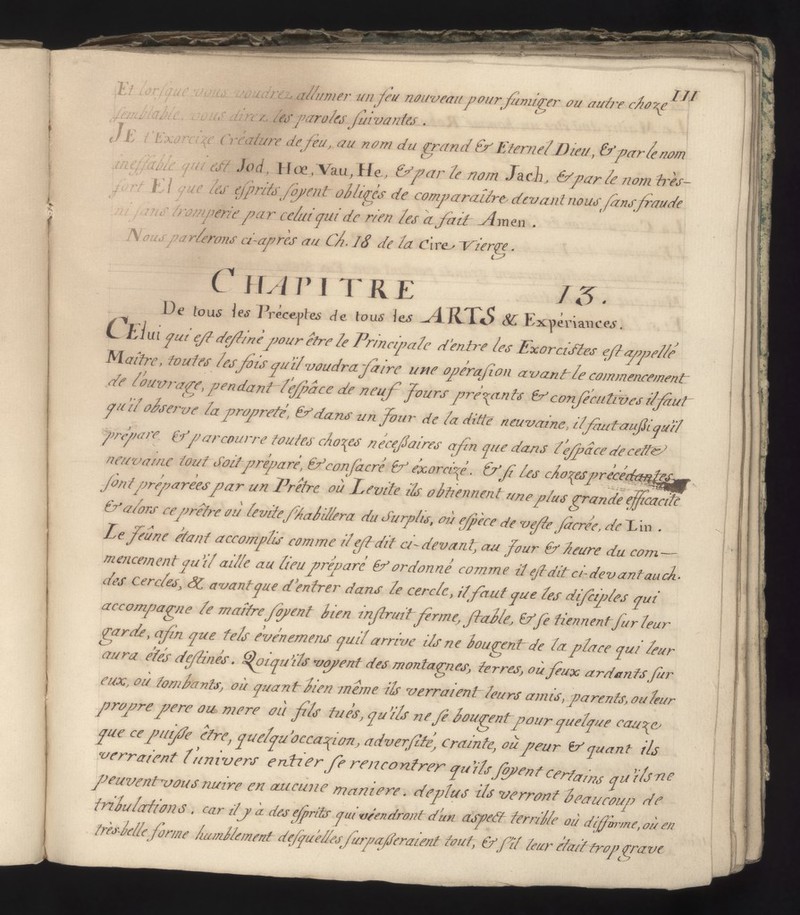 111
Et lorsque vous voudrez allumer un feu nouveau pour fumiger ou autre choze
semblable, vous direz les paroles suivantes.
JE t'Exorcize Créature de feu, au nom du grand & Eternel Dieu, & par le nom
ineffable qui est Jod, Hœ, Vau, He, & par le nom Jach, & par le nom très-
fort El que les esprits soyent obligés de comparaître devant nous sans fraude
ni sans tromperie par celui qui de rien les à fait Amen.
Nous parlerons ci-après au Ch. 18 de la Cire Vierge.
CHAPITRE 13.
De tous les Préceptes de tous les ARTS & Expériances.
CElui qui est destiné pour être le Principale d'entre les Exorcistes est appellé
Maître, toutes les fois qu'il voudra faire une opérasion avant le commencement
de l'ouvrage, pendant l'espâce de neuf Jours prézants & consécutives il faut
qu'il observe la propreté, & dans un Jour de la ditte neuvaine, il faut aussi qu'il
prépare & parcourre toutes chozes nécessaires afin que dans l'espâce de cette
neuvaine tout soit préparé, & consacré & éxorcizé. & si les chozes précédantes
sont préparées par un Prêtre où Levite ils obtiennent une plus grande efficacité
& alors ce prêtre où levite s'habillera du Surplis, où espèce de veste sacrée, de Lin.
Le Jeûne étant accomplis comme il est dit ci-devant, au Jour & heure du com-
mencement qu'il aille au lieu préparé & ordonné comme il est dit ci-devant au ch.
des Cercles, & avant que d'entrer dans le cercle, il faut que les disciples qui
accompagne le maître soyent bien instruit ferme, stable, & se tiennent sur leur
garde, afin que tels événemens quil arrive ils ne bougent de la place qui leur
aura étés destinés. Qoiqu'ils voyent des montagnes, terres, où feux ardants sur
eux, où tombants, où quant bien même ils verraient leurs amis, parents, ou leur
propre pere ou mere où fils tués, qu'ils ne se bougent pour quelque cauze
que ce puisse être, quelqu'occazion, adversité, crainte, où peur & quant ils
verraient l'univers entier se rencontrer qu'ils soyent certains qu'ils ne
peuvent vous nuire en aucune maniere. deplus ils verront beaucoup de
tribulations, car il y à des esprits qui véendront d'un aspect terrible où difforme, où en
très-belle forme humblement desquelles surpasseraient tout, & s'il leur était trop grave